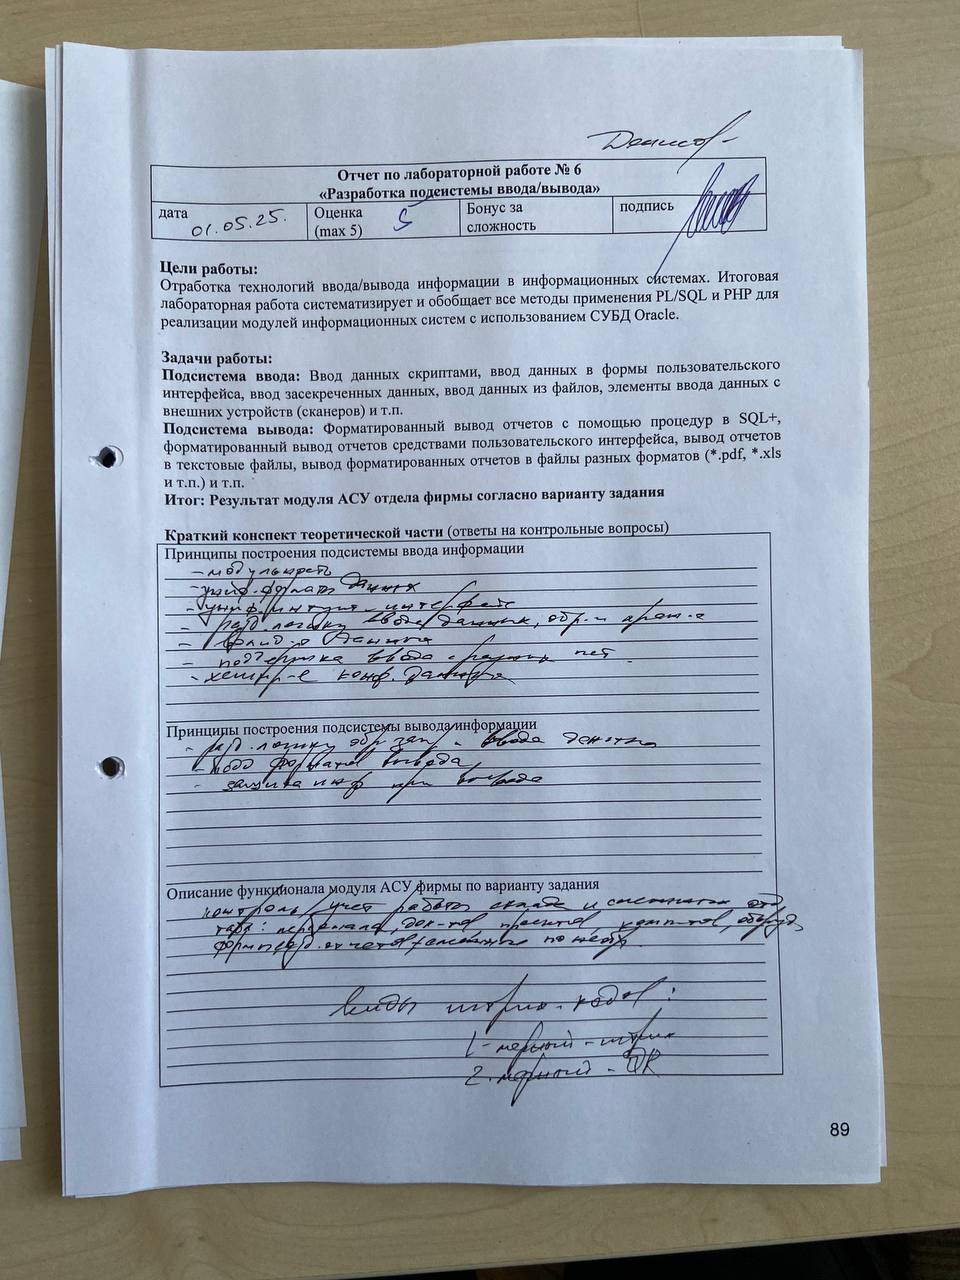 Денисов
Отчет по лабораторной работе № 6
«Разработка подсистемы ввода/вывода»
дата 01.05.25.
Оценка (max 5) 5
Бонус за сложность
подпись
Цели работы:
Отработка технологий ввода/вывода информации в информационных системах. Итоговая
лабораторная работа систематизирует и обобщает все методы применения PL/SQL и PHP для
реализации модулей информационных систем с использованием СУБД Oracle.
Задачи работы:
Подсистема ввода: Ввод данных скриптами, ввод данных в формы пользовательского
интерфейса, ввод засекреченных данных, ввод данных из файлов, элементы ввода данных с
внешних устройств (сканеров) и т.п.
Подсистема вывода: Форматированный вывод отчетов с помощью процедур в SQL+,
форматированный вывод отчетов средствами пользовательского интерфейса, вывод отчетов
в текстовые файлы, вывод форматированных отчетов в файлы разных форматов (*.pdf, *.xls
и т.п.) и т.п.
Итог: Результат модуля АСУ отдела фирмы согласно варианту задания
Краткий конспект теоретической части (ответы на контрольные вопросы)
Принципы построения подсистемы ввода информации
- модульность
- униф. форматы данных
- униф. интерфейс
- разд логики ввода данных, обр. и хран-я
- валид-я данных
- поддержка ввода с разных ист.
- хешир-е конф. данных
Принципы построения подсистемы вывода информации
- разд. логики обр зап, ввода
- форматов вывода
- защита инф при выводе
Описание функционала модуля АСУ фирмы по варианту задания
контроль/учет работы склада и
персонала, док-тов, проектов, комп-тов, оборуд,
отчетов
виды штрих-кодов:
1-мерный - штрих
2-мерный - QR
89